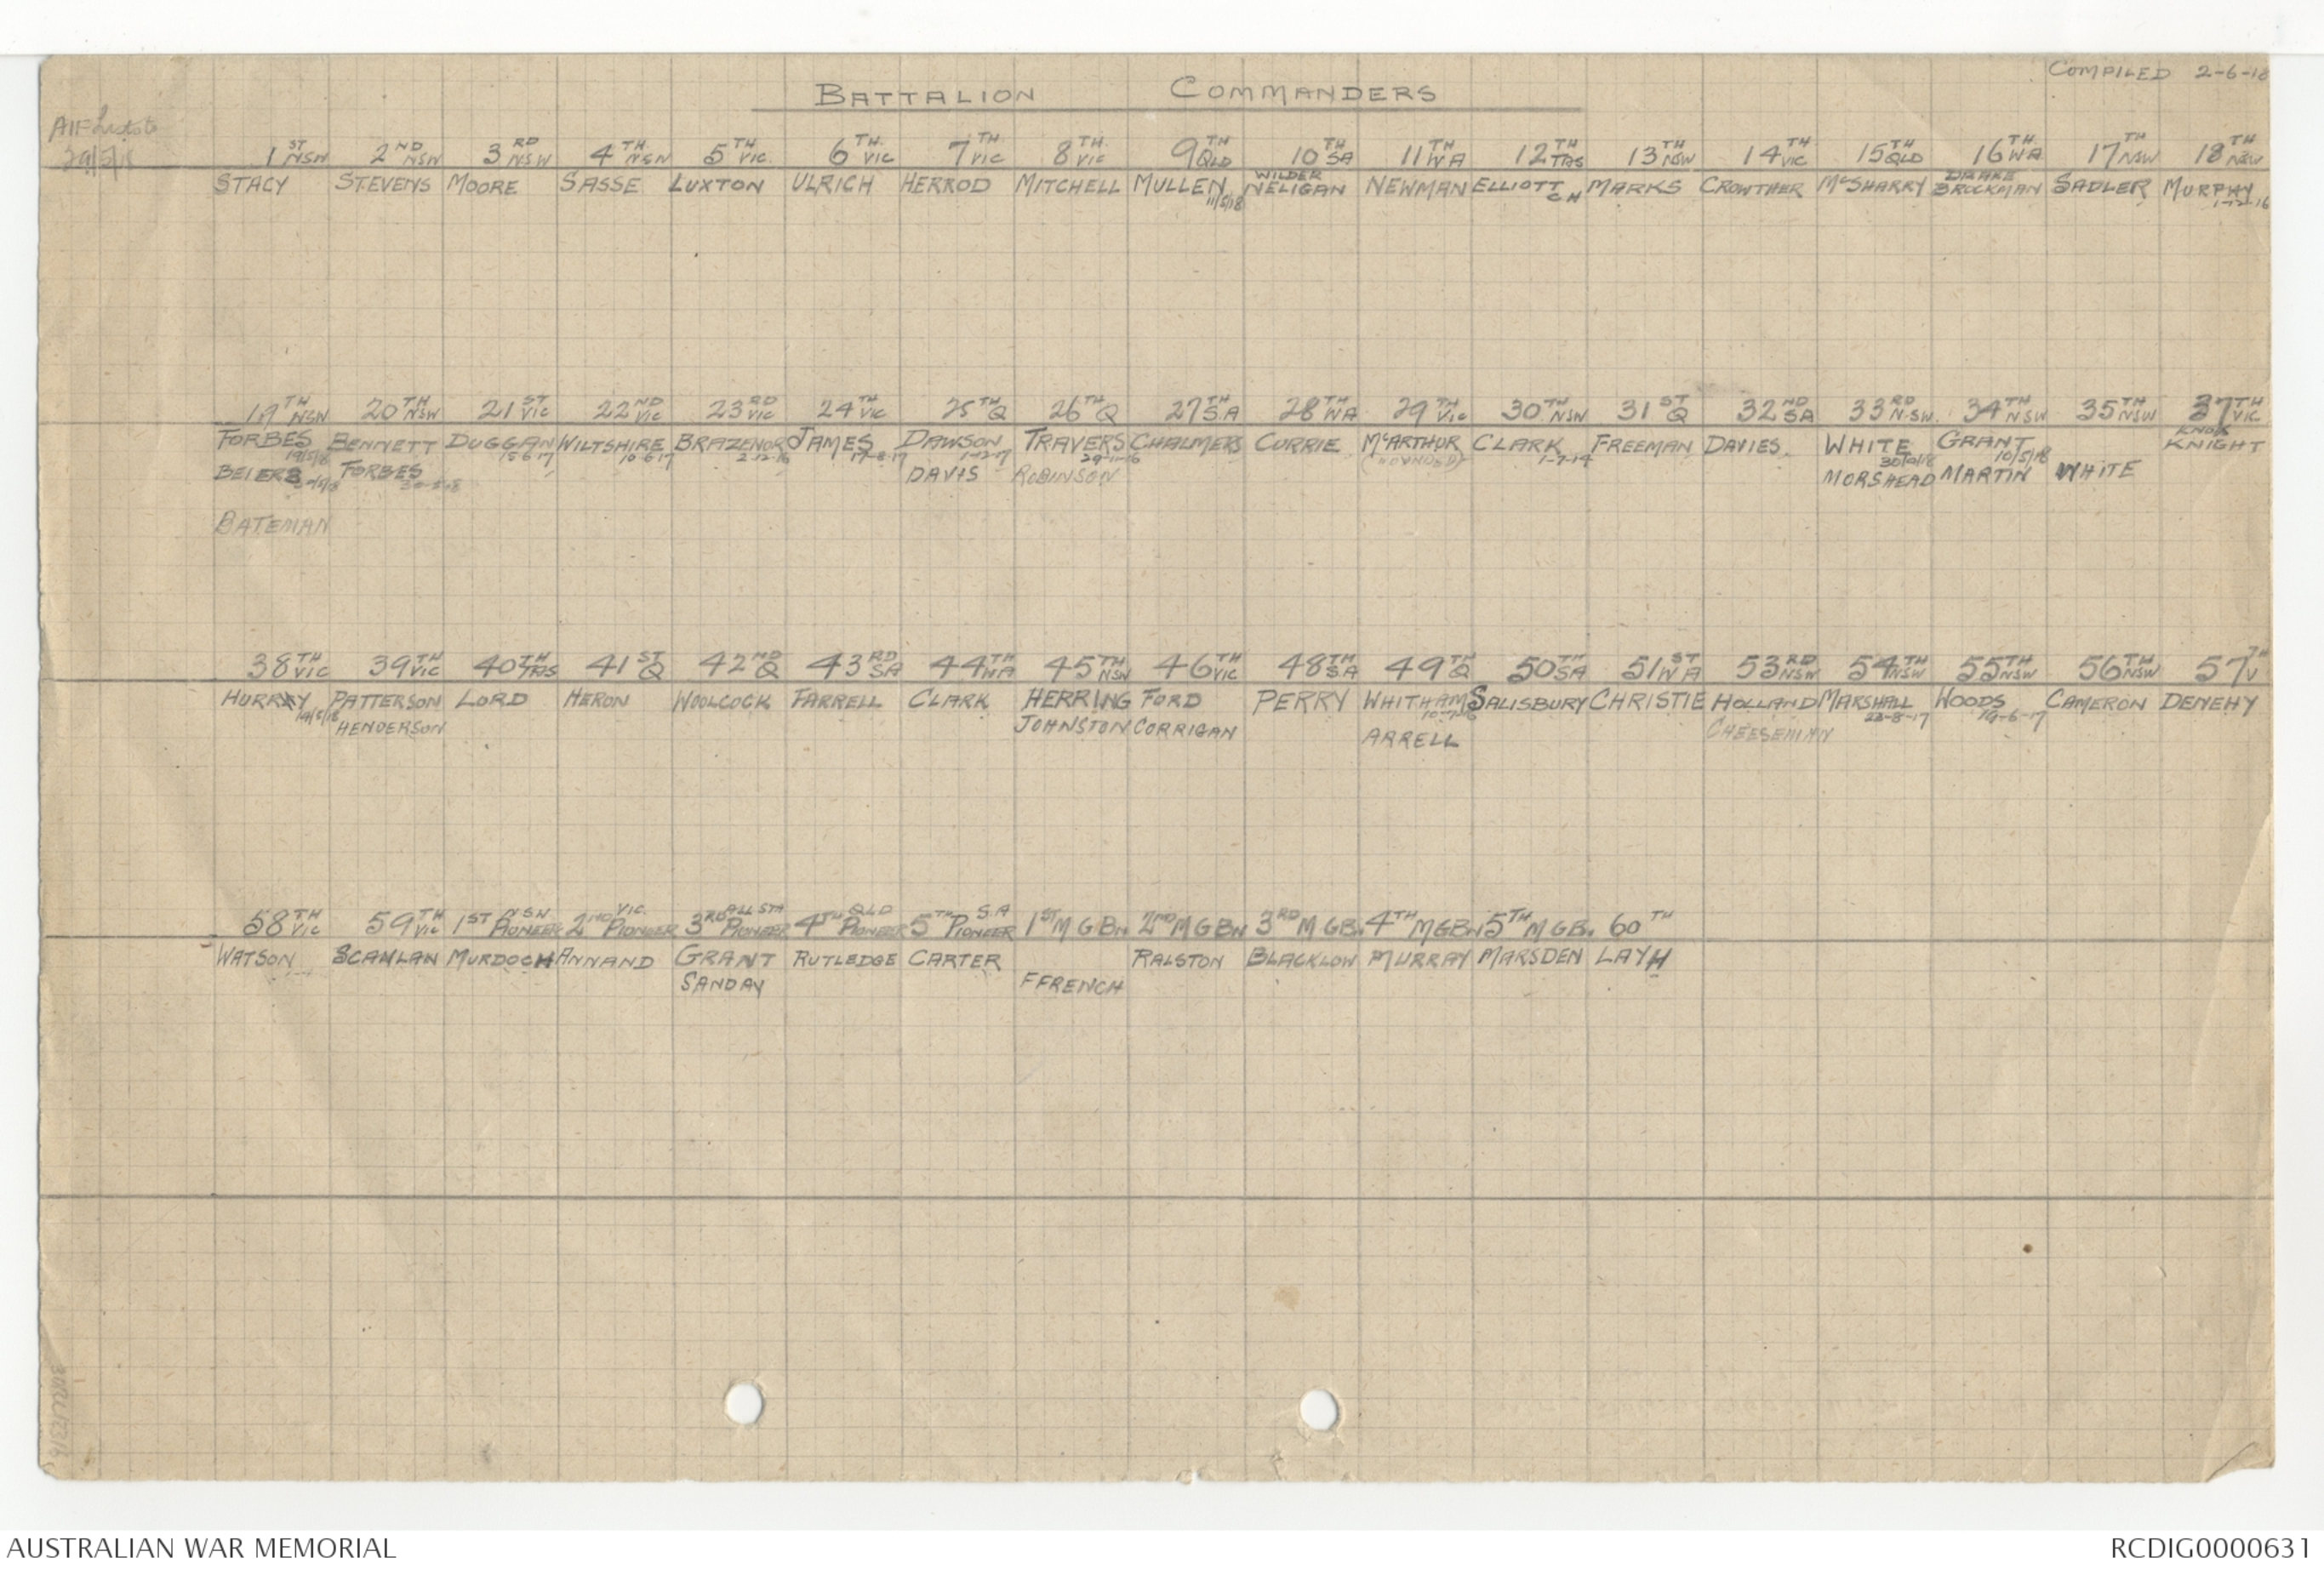 COMPILED 2-6-18
BATTALION COMMANDERS
AIF
1ST NSW 2ND NSW 3RD NSW 4TH NSW 5TH VIC. 6TH VIC 7TH VIC 8TH VIC 9TH QLD 10TH SA 11TH WA 12TH TAS 13TH NSW 14TH VIC 15TH QLD 16TH WA 17TH NSW 18TH NSW
STACY STEVENS MOORE SASSE LUXTON ULRICH HERROD MITCHELL MULLEN 11/5/18 WILDER NELIGAN NEWMAN ELLIOTT CH MARKS CROWTHER McSHARRY DRAKE BROCKMAN SADLER MURPHY 1-12-16
19TH NSW 20TH NSW 21ST VIC 22ND VIC 23RD VIC 24TH VIC 25TH Q 26TH Q 27TH S.A 28TH WA 29TH VIC 30TH NSW 31ST Q 32ND SA 33RD N.SW. 34TH NSW 35TH NSW 37TH VIC
FORBES BENNETT DUGGAN 15-6-17 WILTSHIRE 10-6-17 BRAZENOR 2-12-16 JAMES 17-8-17 DAWSON 1-12-17 TRAVERS 29-11-16 CHALMERS CURRIE McARTHUR (WOUNDED) CLARK FREEMAN DAVIES. WHITE GRANT 10/5/18 KNOX KNIGHT
BEIERS FORBES DAVIS ROBINSON MORSHEAD MARTIN WHITE
BATEMAN
38TH VIC 39TH VIC 40TH TAS 41ST Q 42ND Q 43RD SA 44TH WA 45TH NSW 46TH VIC 48TH SA 49TH Q 50TH SA 51ST WA 53RD NSW 54TH NSW 55TH NSW 56TH NSW 57TH V
HURRY PATTERSON LORD HERON WOOLCOCK FARRELL CLARK HERRING FORD PERRY WHITHAM SALISBURY CHRISTIE HOLLAND MARSHALL 23-8-17 WOODS 19-6-17 CAMERON DENEHY
HENDERSON JOHNSTON CORRIGAN ARRELL CHEESEMAN
58TH VIC 59TH VIC 1ST PIONEER NSW 2ND PIONEER VIC. 3RD PIONEER ALL STA 4TH PIONEER QLD 5TH PIONEER S.A 1ST M G BN 2ND M G BN 3RD M GB. 4TH MGBN 5TH M GB. 60TH
WATSON SCANLAN MURDOCH ANNAND GRANT RUTLEDGE CARTER RALSTON BLACKLOW MURRAY MARSDEN LAYH
SANDAY FFRENCH
AUSTRALIAN WAR MEMORIAL
RCDIG0000631